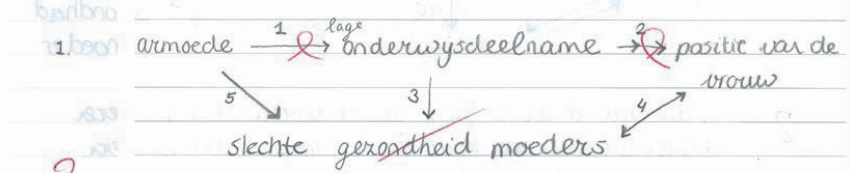 1
lage
2
1. armoede onderwijsdeelname positie van de
vrouw
5
3
4
slechte gezondheid moeders